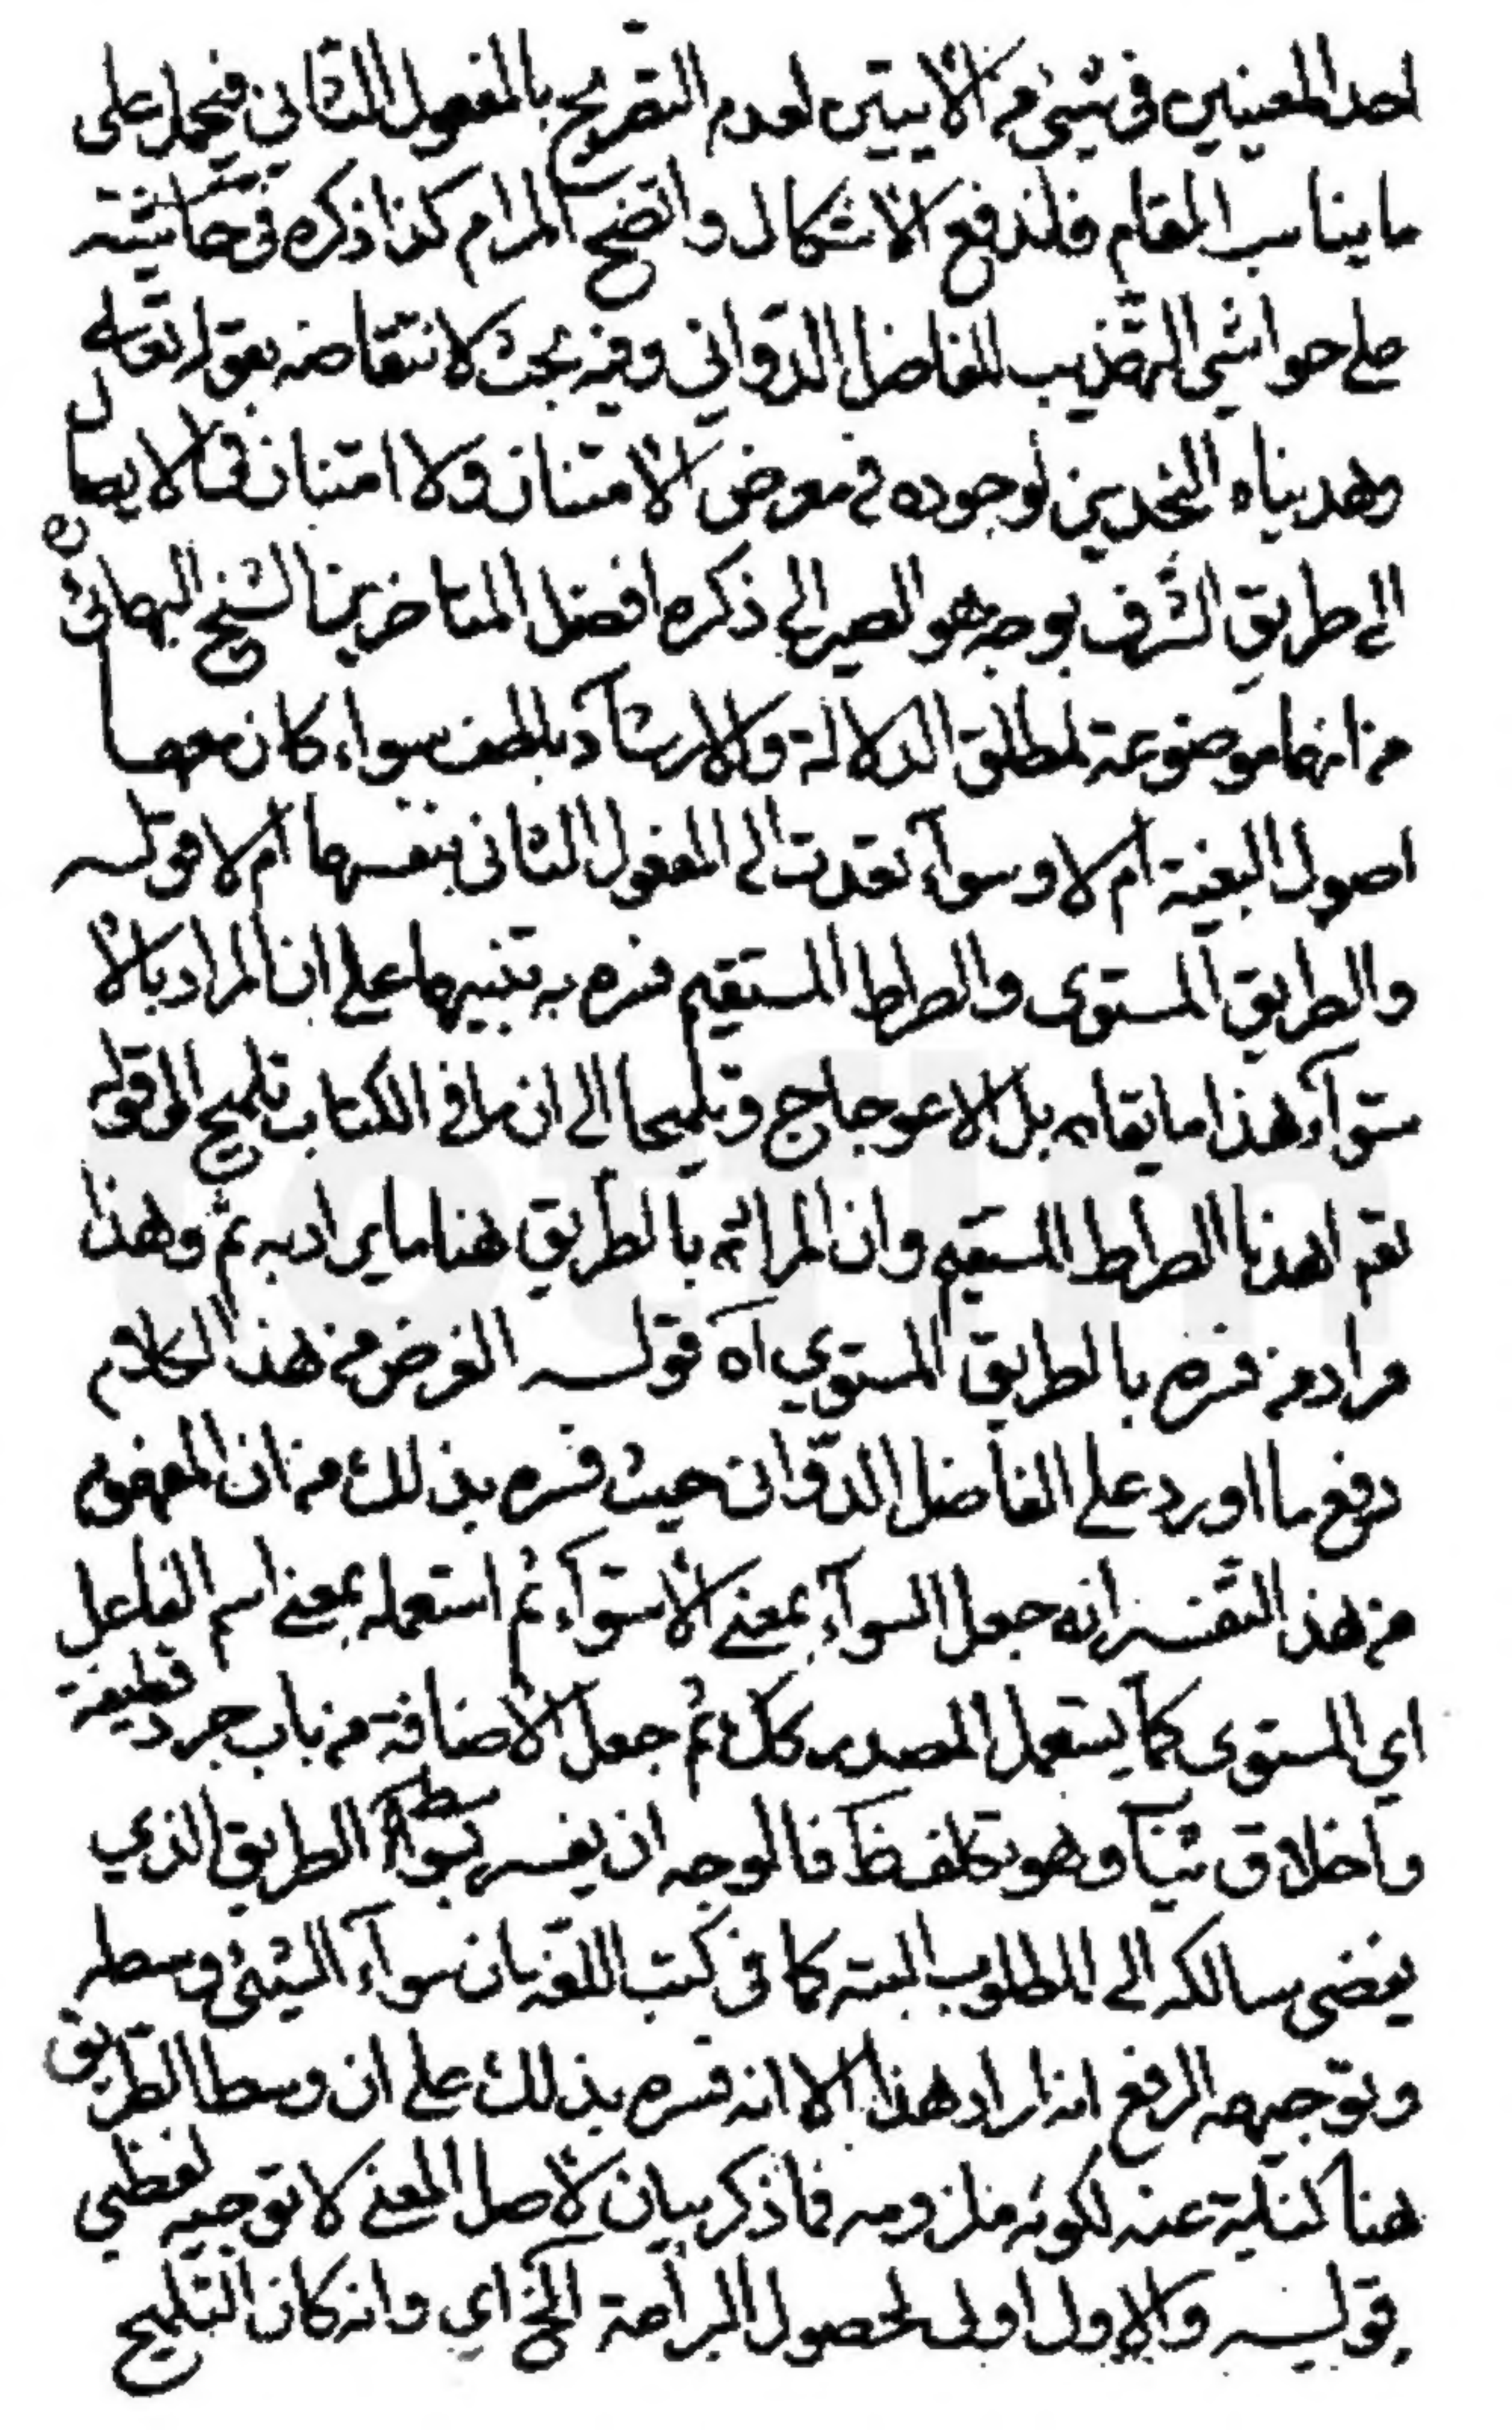 احد المعنيين في شيء من الآيتين لعدم التصريح بالمفعول الثاني فيحمل على
ما يناسب المقام فلندفع الاشكال واتضح المرام كذا ذكره في حاشيته
على حواشي التهذيب للفاضل الدواني وفيه بحث لانتقاضه بقوله تعالى
وهديناه النجدين لوجوده في معرض الامتنان ولا امتنان في الايصال
الى طريق الشر ف بوجه هو المصير الى ذكره افضل المتاخرين الشيخ البهائي ره
من انها موضوعة لمطلق الدلالة والارشاد بلطف سواء كان معها
اصول البغية ام لا وسواء تعدت الى المفعول الثاني بنفسها ام لا قوله
والطريق المستوى والصراط المستقيم فسره به تنبيها على ان المراد بالا
ستوآء هذا ما يقابل الاعوجاج وتلميحا الى ان ما في الكتاب تلميح الى قوله
تعم اهدنا الصراط المستقيم وان المراد بالطريق هنا ما يراد به ثم وهذا
مراد من فسره بالطريق المستوي اه قوله الغرض من هذا الكلام
دفع ما اورد على الفاضل الدواني حيث فسره بذلك من ان المفهوم
من هذا التفسير انه جعل السوآء بمعنى الاستوآء ثم استعمله بمعنى اسم الفاعل
اي المستوى كما يستعمل المصدر كك ثم جعل الاضافة من باب جرد قطيفة
واخلاق ثياب وهو تكلف ظ فالوجه ان يفسر بوسط الطريق الذي
يفضى سالكه الى المطلوب البته كما في كتب اللغة بان سوآء الشيء وسطه
وتوجيه الدفع انه اراد هذا الا انه فسره بذلك على ان وسط الطريق
هنا كناية عنه لكونه ملزومه فما ذكر بيان لاصل المعنى لا توجيه لفظي
قوله والاول اولى لحصول البراعة الخ اي وان كان التلميح